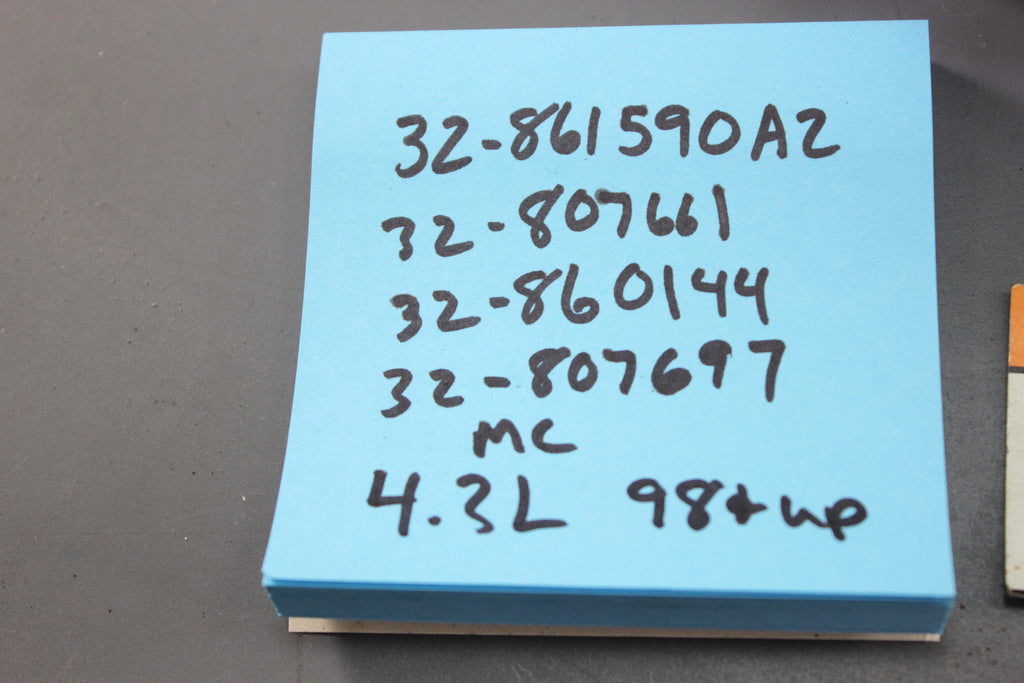 32-861590A2
32-807661
32-860144
32-807697
MC
4.3L 98+up